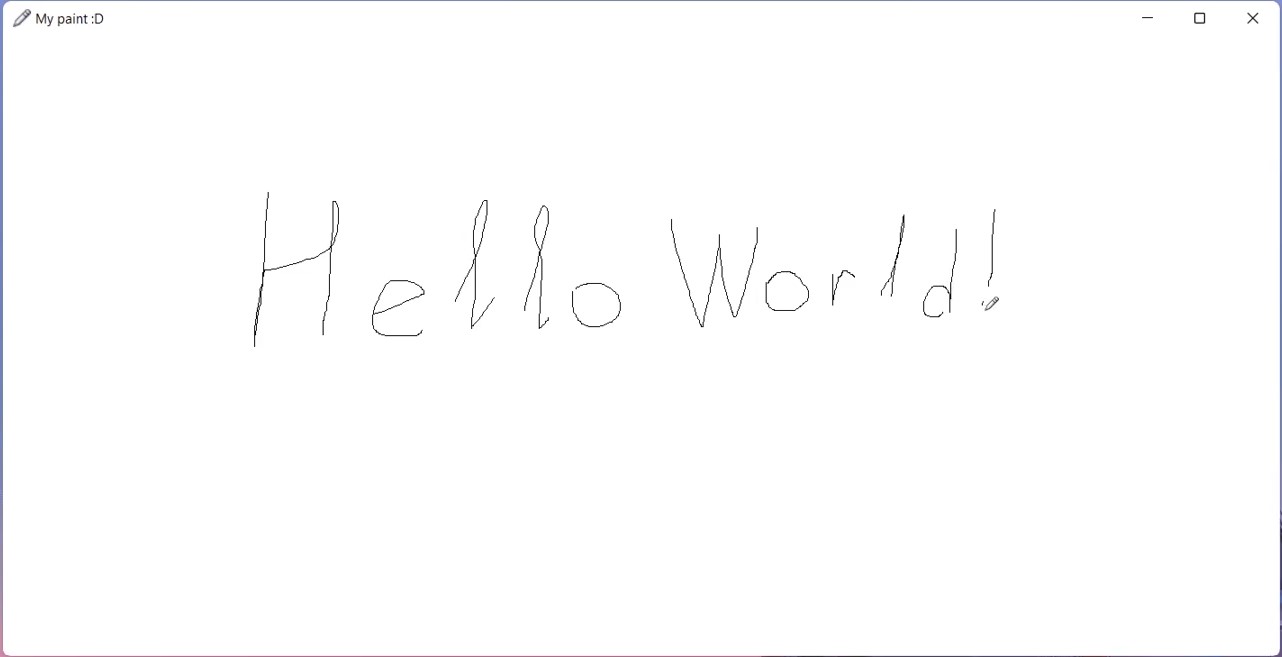 My paint :D
Hello World!